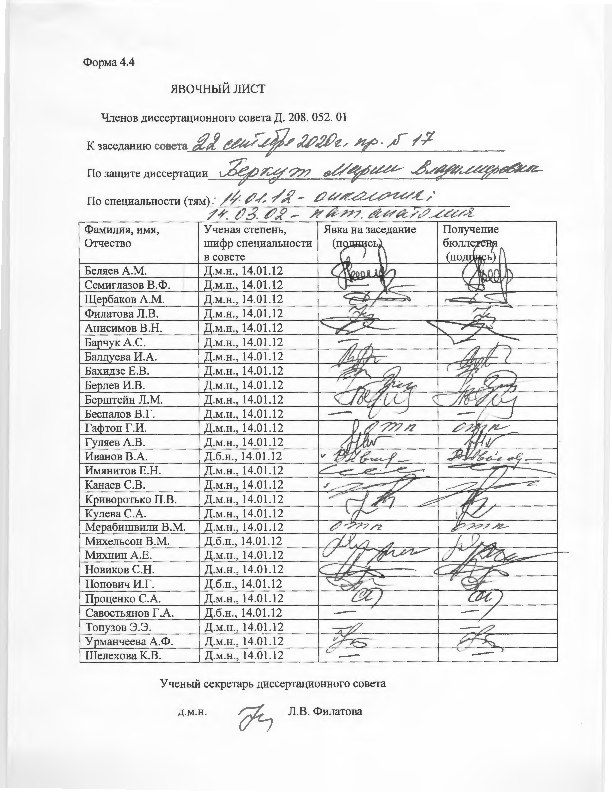 Форма 4.4
ЯВОЧНЫЙ ЛИСТ
Членов диссертационного совета Д. 208. 052. 01
К заседанию совета 22 сентября 2020г. пр. № 17
По защите диссертации Беркут Марии Владимировны
По специальности (тям): 14.01.12 - онкология;
14.03.02 - пат. анатомия
Фамилия, имя, Отчество Ученая степень, шифр специальности в совете Явка на заседание (подпись) Получение бюллетеня (подпись)
Беляев А.М. Д.м.н., 14.01.12
Семиглазов В.Ф. Д.м.н., 14.01.12
Щербаков А.М. Д.м.н., 14.01.12
Филатова Л.В. Д.м.н., 14.01.12
Анисимов В.Н. Д.м.н., 14.01.12
Барчук А.С. Д.м.н., 14.01.12 — —
Балдуева И.А. Д.м.н., 14.01.12
Бахидзе Е.В. Д.м.н., 14.01.12
Берлев И.В. Д.м.н., 14.01.12
Берштейн Л.М. Д.м.н., 14.01.12
Беспалов В.Г. Д.м.н., 14.01.12 — —
Гафтон Г.И. Д.м.н., 14.01.12 отп отп
Гуляев А.В. Д.м.н., 14.01.12
Иванов В.А. Д.б.н., 14.01.12
Имянитов Е.Н. Д.м.н., 14.01.12
Канаев С.В. Д.м.н., 14.01.12
Криворотько П.В. Д.м.н., 14.01.12
Кулева С.А. Д.м.н., 14.01.12
Мерабишвили В.М. Д.м.н., 14.01.12 отп отп
Михельсон В.М. Д.б.н., 14.01.12
Михнин А.Е. Д.м.н., 14.01.12
Новиков С.Н. Д.м.н., 14.01.12
Попович И.Г. Д.б.н., 14.01.12
Проценко С.А. Д.м.н., 14.01.12
Савостьянов Г.А. Д.б.н., 14.01.12 — —
Топузов Э.Э. Д.м.н., 14.01.12
Урманчеева А.Ф. Д.м.н., 14.01.12
Шелехова К.В. Д.м.н., 14.01.12 — —
Ученый секретарь диссертационного совета
д.м.н. Л.В. Филатова